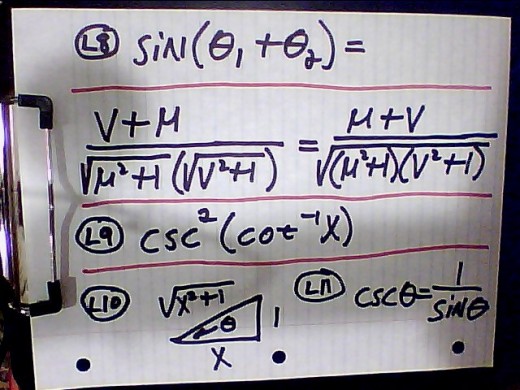 L8 sin(θ₁+θ₂)=
V+M / √M²+1 (√V²+1) = M+V / √(M²+1)(V²+1)
L9 csc²(cot⁻¹x)
L10 √x²+1 θ 1 x
L11 cscθ=1/sinθ